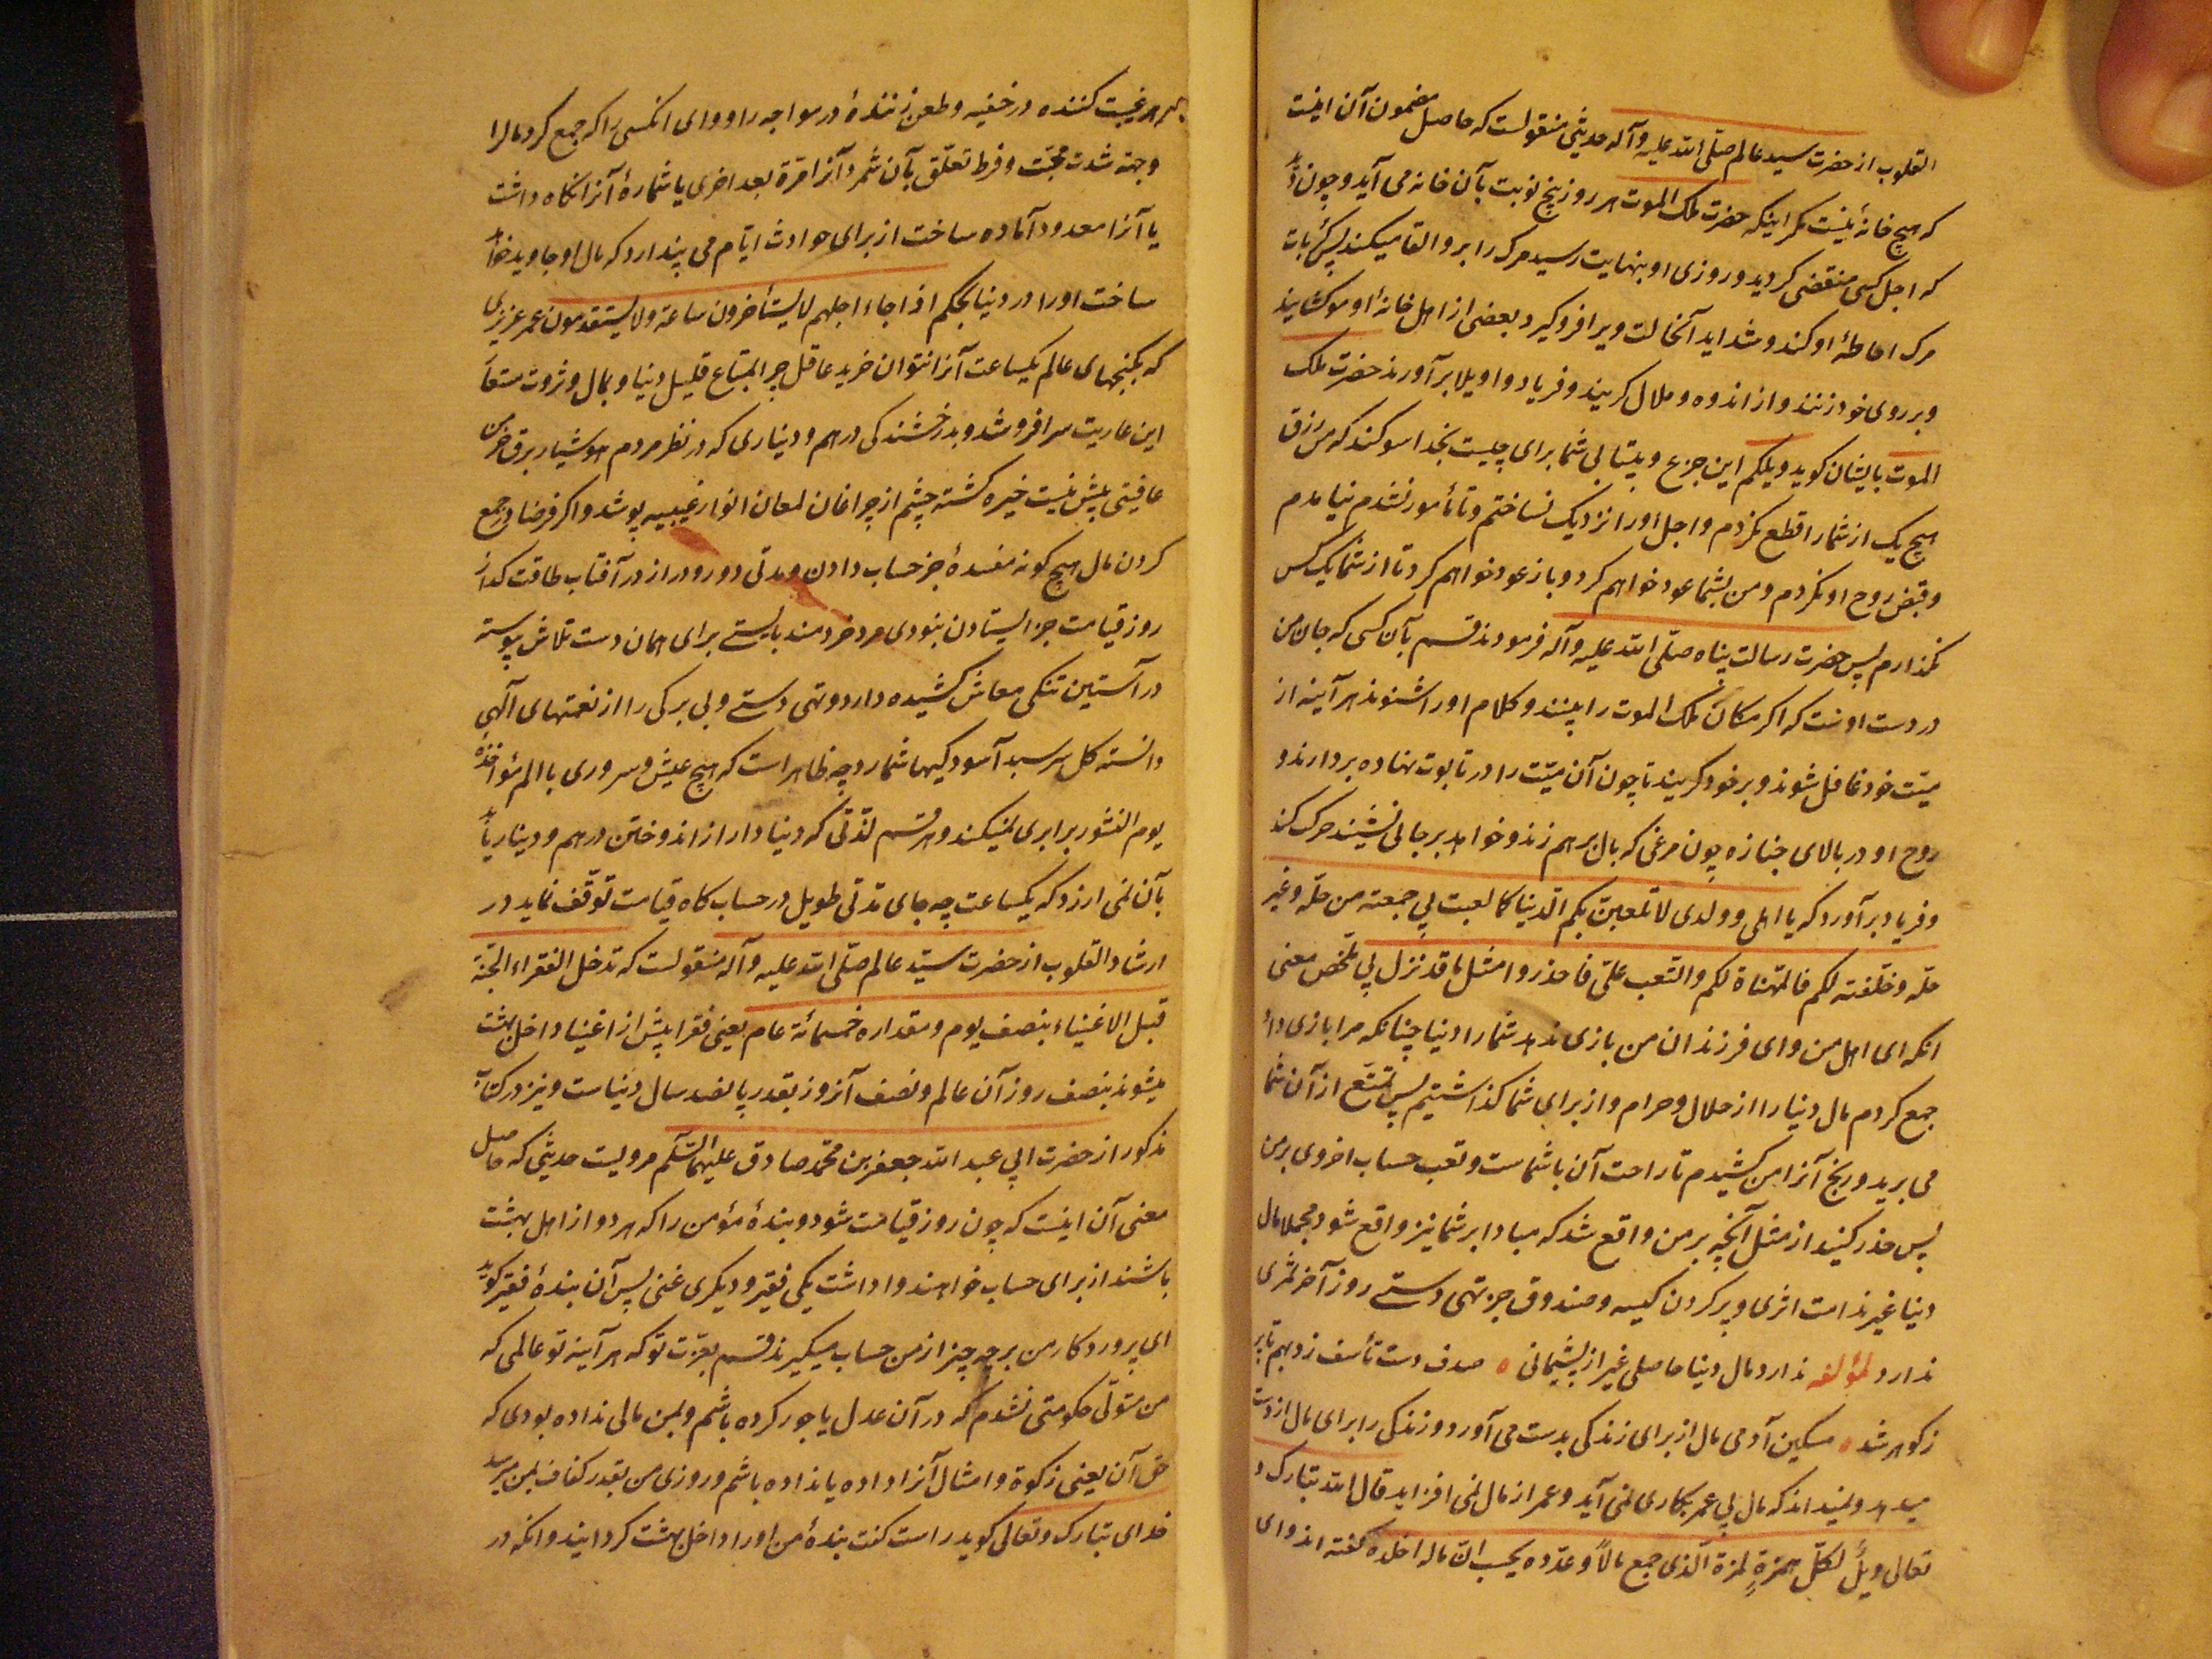 القلوب از حضرت سید عالم صلّی الله علیه وآله حدیثی منقولست که حاصل مضمون آن اینست
که هیچ خانهٔ نیست مکر اینکه حضرت ملک الموت هر روز پنج نوبت بآن خانه می آید و چون
که اجل کسی منقضی کردید و روزی او بنهایت رسید مرک را برو القا میکند پس کربات
مرک احاطهٔ او کند و شداید آنحالت ویرا فرو کیرد و بعضی از اهل خانهٔ او مو کشایند
و بر روی خود زنند و از اندوه و ملال کریند و فریاد و اویلا برآورند حضرت ملک
الموت بایشان کوید ویلکم این جزع و بیتابی شما برای چیست بخدا سوکند که من رزق
هیچ یک از شما را قطع نکردم و اجل او را نزدیک نساختم و تا مأمور نشدم نیامدم
و قبض روح او نکردم و من بشما عود خواهم کرد و باز عود خواهم کرد تا از شما یک کس
نکذارم پس حضرت رسالت پناه صلّی الله علیه وآله فرمودند قسم بآن کسی که جان من
در دست اوست که اکر مکان ملک الموت را بینند و کلام او را شنوند هر آینه از
میّت خود غافل شوند و بر خود کریند تا چون آن میّت را در تابوت نهاده بردارند و
روح او در بالای جنازه چون مرغی که بال بر هم زند و خواهد بر جائی نشیند حرکت کند
و فریاد برآورد که یا اهلی و ولدی لا تلعبنّ بکم الدّنیا کما لعبت بی جمعته من حلّه و غیر
حلّه و خلّفته لکم فالمهناة لکم والتّعب علیّ فاحذروا مثل ما قد نزل بی ملخّص معنی
انکه ای اهل من وای فرزندان من بازی ندهد شما را دنیا چنانکه مرا بازی داد
جمع کردم مال دنیا را از حلال و حرام و از برای شما کذاشتیم پس تمتّع از آن شما
می برید و رنج آنرا من کشیدم تا راحت آن با شماست و تعب حساب اخروی بر من
پس حذر کنید از مثل آنچه بر من واقع شد که مبادا بر شما نیز واقع شود مجملا مال
دنیا غیر ندامت اثری و پر کردن کیسه و صندوق جز تهی دستے روز آخر ثمری
ندارد لمؤلفه ندارد مال دنیا حاصلی غیر از پشیمانی ٥ صدف دست تأسف زد بهم تا پر
ز کوهر شد ٥ مسکین آدمی مال از برای زندکی بدست می آورد و زندکی را برای مال از دست
میدهد و نمیداند که مال پی عمر بکاری نمی آید و عمر از مال نمی افزاید قال الله تبارک و
تعالی ویلٌ لکلّ همزةٍ لمزة الّذی جمع مالاً وعدّده یحسب انّ ماله اخلده کفته اند وای
هر غیبت کننده در خفیه و طعن زنندهٔ در مواجه را و وای انکسی را که جمع کرد مالرا
و جهة شدت محبّت و فرط تعلّق بآن شمرد آنرا مرّة بعد اخری یا شمارهٔ آنرا نکاه داشت
یا آنرا معدود آماده ساخت از برای حوادث ایّام می پندارد که مال او جاوید خواهد
ساخت او را در دنیا بحکم اذا جاء اجلهم لا یستأخرون ساعة ولا یستقدمون عمر عزیزی
که بکنجهای عالم یکساعت آنرا نتوان خرید عاقل چرا بمتاع قلیل دنیا و بمال و ثروت مستعار
این عاریت سرا فروشد و بدرخشندکی درهم و دیناری که در نظر مردم هوشیار برق خرمن
عافیتی بیش نیست خیره کشته چشم از چراغان لمعان انوار غیبیه پوشد و اکر فرضا در جمع
کردن مال هیچ کونه مفسدهٔ جز حساب دادن و مدتی دور و دراز در آفتاب طاقت کداز
روز قیامت جز ایستادن نبودی مرد خردمند بایستے برای همان دست تلاش پیوسته
در آستین تنکی معاش کشیده دارد و تهی دستے و بی برکی را از نعمتهای آلهی
دانسته کل سر سبد آسودکیها شمارد چه ظاهر است که هیچ عیش و سروری با الم مؤاخذه
یوم النشور برابری نمیکند و هر قسم لذّتی که دنیادار از اندوختن درهم و دینار یابد
بآن نمی ارزد که یکساعت چه جای مدّتی طویل در حساب کاه قیامت توقّف نماید در
ارشاد القلوب از حضرت سیّد عالم صلّی الله علیه وآله منقولست که تدخل الفقراء الجنّة
قبل الاغنیاء بنصف یوم و مقداره خمسمائة عام یعنی فقرا پیش از اغنیا داخل بهشت
میشوند بنصف روز آن عالم و نصف آنروز بقدر پانصد سال دنیاست و نیز در کتاب
مذکور از حضرت ابی عبدالله جعفر بن محمّد صادق علیهما السّلم مرویست حدیثی که حاصل
معنی آن اینست که چون روز قیامت شود دو بندهٔ مؤمن را که هر دو از اهل بهشت
باشند از برای حساب خواهند واداشت یکی فقیر و دیکری غنی پس آن بندهٔ فقیر کوید
ای پروردکار من بر چه چیز از من حساب میکیرند قسم بعزت تو که هر آینه تو عالمی که
من متولّی حکومتی نشدم که در آن عدل یا جور کرده باشم و بمن مالی نداده بودی که
حق آن یعنی زکوة و امثال آنرا داده یا نداده باشم و روزی من بقدر کفاف بمن میرسید
خدای تبارک و تعالی کوید راست کفت بندهٔ من او را داخل بهشت کردانید و انکه در